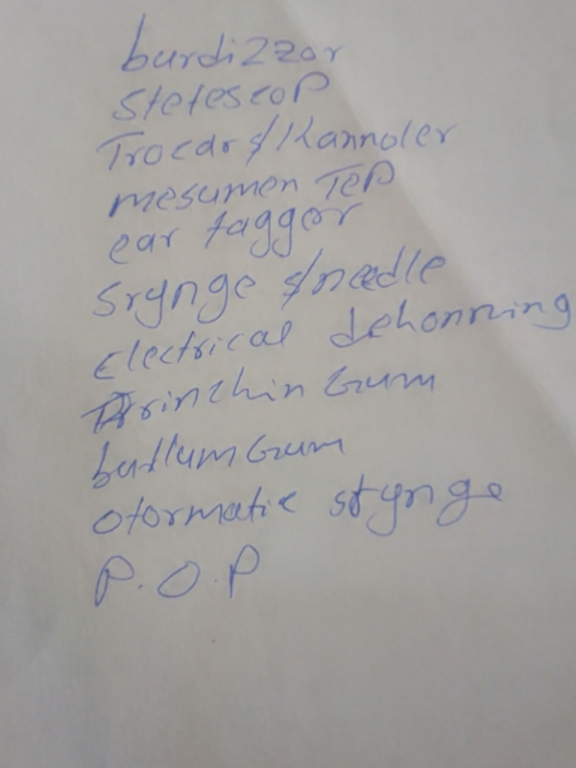 burdizzor
stetescop
Trocar &/Kannoler
mesumen TeP
ear tagger
Srynge &/needle
Electrical dehonrning
Drinzhin Gum
butlum Gum
otormatic srynge
P.O.P